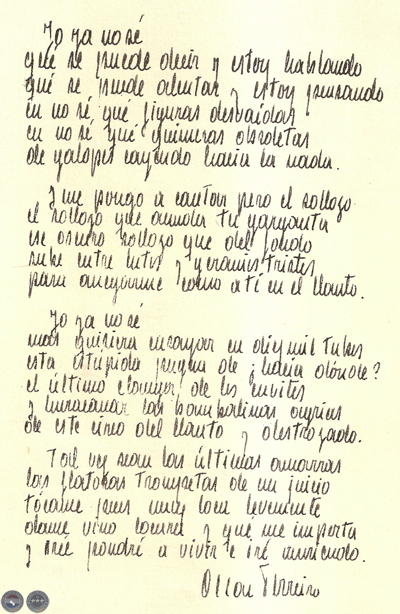 Yo ya no sé
qué se puede decir y estoy hablando
qué se puede alentar y estoy pensando
en no sé qué figuras desvaídas
en no sé qué quimeras obsoletas
de galopes cayendo hacia la nada.
Y me pongo a cantar pero el sollozo
el sollozo que anuda tu garganta
ese oscuro sollozo que del fondo
sube entre lutos y geranios tristes
para anegarme como a ti en el llanto.
Yo ya no sé
mas quisiera encajar en diez mil tubos
esta estúpida pugna de ¿hacia dónde?
el último clamor de los envites
y huracanar las bambalinas
de este circo del llanto y destrozado.
Tal vez sean las últimas amarras
las trompetas de un juicio
tócame pues muy loca levemente
dame vino locura y qué me importa
y me pondré a vivir e iré muriendo.
Oscar Ferreiro